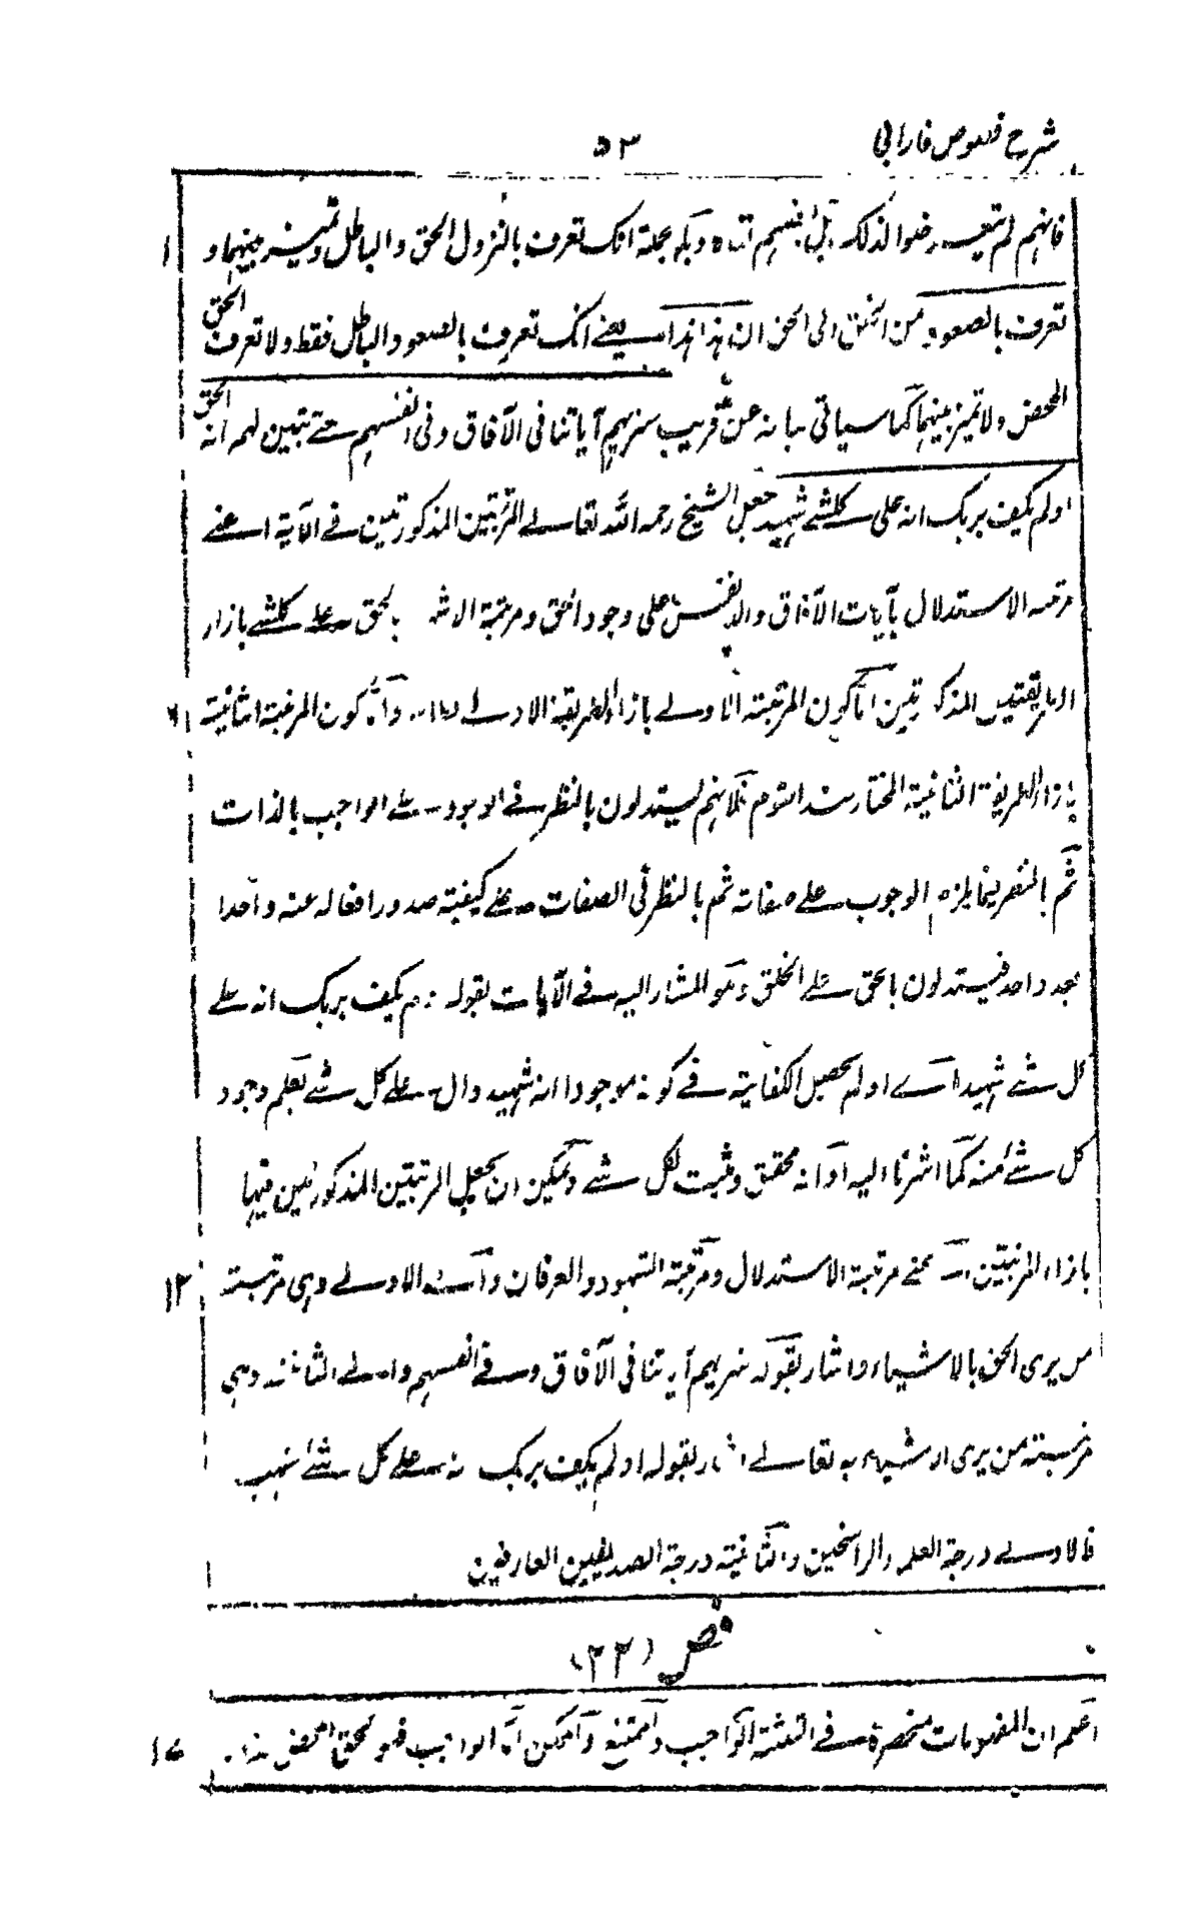 شرح فصوص فارابی
٥٣
فانهم لم يتعرضوا لذلك بل بنفسهم وبالجملة انك تعرف بالنزول الحق والباطل وتميز بينهما و
١
تعرف بالصعود من الخلق الى الحق ان هذا هذا يعنے انك تعرف بالصعود الباطل فقط ولا تعرف الحق
المحض ولا تميز بينهما كما سياتى بيانه عن قريب سنريهم آياتنا فى الآفاق وفى انفسهم حتے تبين لهم انه الحق
اولم يكف بربك انه على كلشے شهيد جعل الشيخ رحمه الله تعالے المرتبتين المذكورتين فے الآية اعنے
مرتبة الاستدلال بآيات الآفاق والانفس على وجود الحق ومرتبة الاستشهاد بالحق علے كلشے بازاء
الطريقتين المذكورتين اما كون المرتبة الاولے بازاء الطريقة الاولے واما كون المرتبة الثانية
٦
بازاء الطريقة الثانية المختارة عند القوم فلانهم يستدلون بالنظر فے الوجود علے الواجب بالذات
ثم بالنظر فيما يلزم الوجوب علے صفاته ثم بالنظر فى الصفات علے كيفية صدور افعاله عنه واحدا
بعد واحد فيستدلون بالحق علے الخلق وهو المشار اليه فے الآيات بقوله اولم يكف بربك انه علے
كل شے شهيد اے اولم يحصل الكفاية فے كونه موجودا انه شهيد دال علے كل شے يعلم وجود
كل شئ منه كما اشرنا اليه او انه محقق ومثبت لكل شے ويمكن ان يجعل المرتبتين المذكورتين فيها
بازاء المرتبتين اعنے مرتبة الاستدلال ومرتبة الشهود والعرفان واشار الے الاولے وهى مرتبة
١٢
من يرى الحق بالاشياء واشار بقوله سنريهم آياتنا فى الآفاق وفے انفسهم والے الثانية وهى
مرتبة من يرى الاشياء به تعالے اشار بقوله اولم يكف بربك انه علے كل شئے شهيد
فالاولے درجة العلماء الراسخين والثانية درجة الصديقين العارفين
فص (٢٢)
اعلم ان المفهومات منحصرة فے الثلثة الواجب والممتنع والممكن اما الواجب فهو الحق المحض
١٥